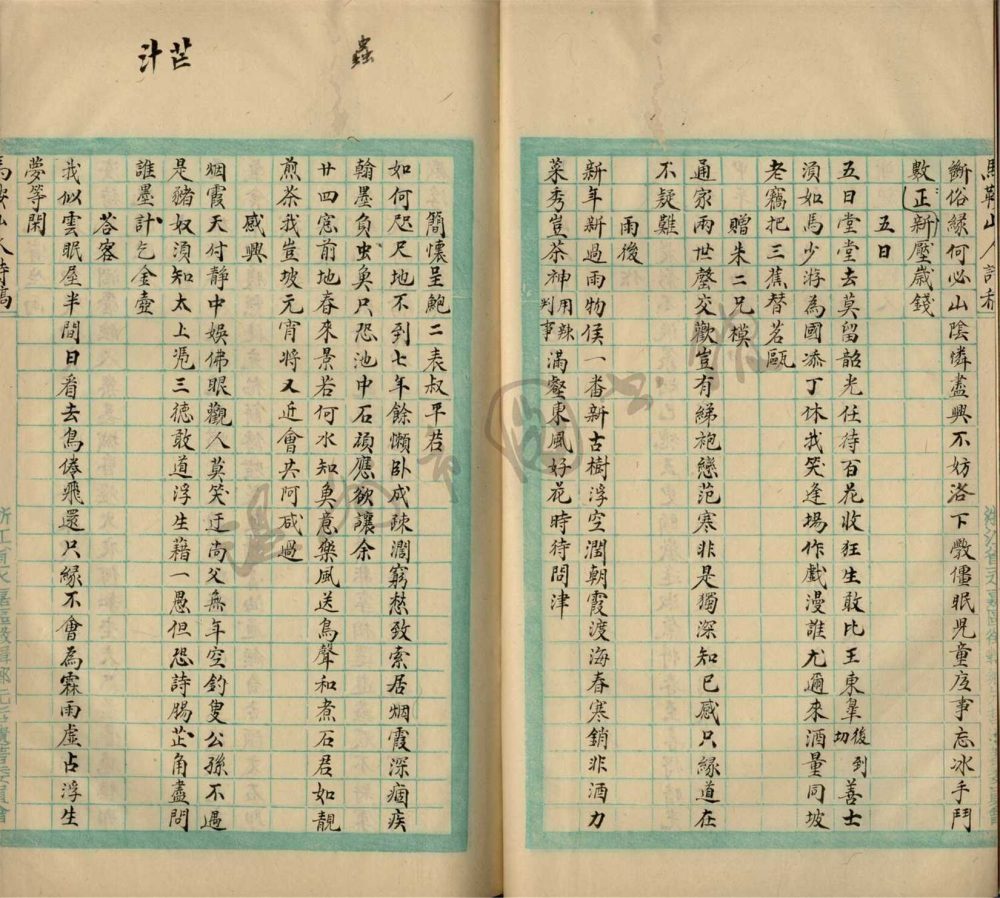 斷俗緣何必山陰憐盡興不妨洛下斆僵眠兒童底事忘冰手鬥
數正新壓歲錢
五日
五日堂堂去莫留韶光任待百花收狂生敢比王東皐後到善士
須如馬少游為國添丁休我笑逢場作戲漫誰尤邇來酒量同坡
老竊把三蕉替茗甌
贈朱二兄模
通家兩世罄交歡豈有綈袍戀范寒非是獨深知已感只緣道在
不疑難
雨後
新年新過雨物侯一番新古樹浮空潤朝霞渡海春寒銷非酒力
菜秀豈茶神用辣判事滿壑東風好花時待問津
蟲
芒
計
簡懷呈鮑二表叔平若
如何咫尺地不到七年餘懶卧成疎濶窮愁致索居烟霞深痼疾
翰墨負虫奐只恐池中石碩應欲讓余
廿四窓前地春來景若何水知奐意樂風送鳥聲和煮石君如靚
煎茶我豈坡元宵將又近會共阿咸過
感興
烟霞天付靜中娛佛眼觀人莫笑迂尚父無年空釣叟公孫不過
是豬奴須知太上凴三德敢道浮生藉一愚但恐詩腸芷角盡問
誰墨計乞金壺
答客
我似雲眠屋半間日看去鳥倦飛還只緣不會為霖雨虛占浮生
夢等閑